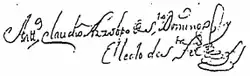 Antt.º Claudio Arzobpo de S.to Domingo y
Electo de S.ta Fe